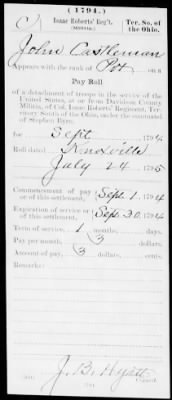 (1794.)
C
Isaac Roberts' Reg't.
(Militia.)
Ter. So. of the Ohio.
John Castleman
Appears with the rank of Pvt on a
Pay Roll
of a detachment of troops in the service of the
United States, at or from Davidson County
Militia, of Col. Isaac Roberts' Regiment, Ter-
ritory South of the Ohio, under the command
of Stephen
for Sept 1794
Roll dated Knoxville
July 24 1795
Commencement of pay
or of this settlement, Sept. 1, 1794
Expiration of service or
of this settlement, Sep. 30, 1794
Term of service, 1 months, days.
Pay per month, 3 dollars.
Amount of pay, 3 dollars, cents.
Remarks:
J. B. Hyatt
Copyist.